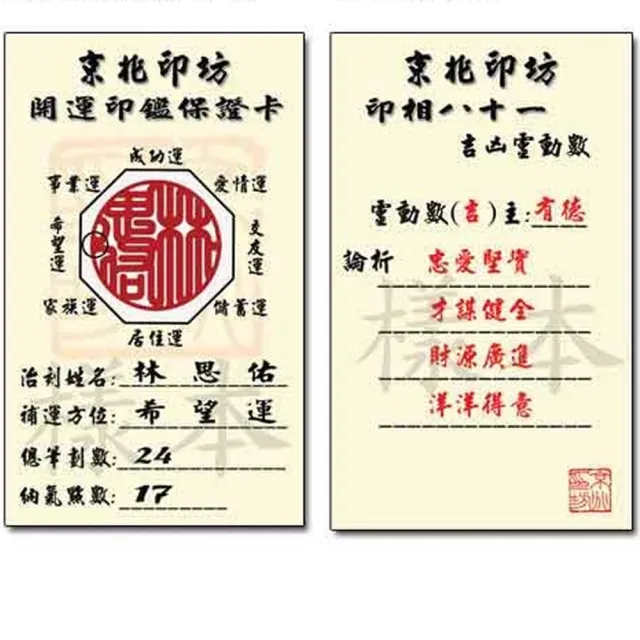 京兆印坊
開運印鑑保證卡
成功運
事業運
愛情運
希望運
交友運
家族運
儲蓄運
居住運
治刻姓名:林思佑
補運方位:希望運
總筆劃數:24
納氣點數:17
樣本
京兆印坊
印相八十一
吉凶靈動數
靈動數(吉)主:有德
論析 忠愛堅實
才謀健全
財源廣進
洋洋得意
樣本